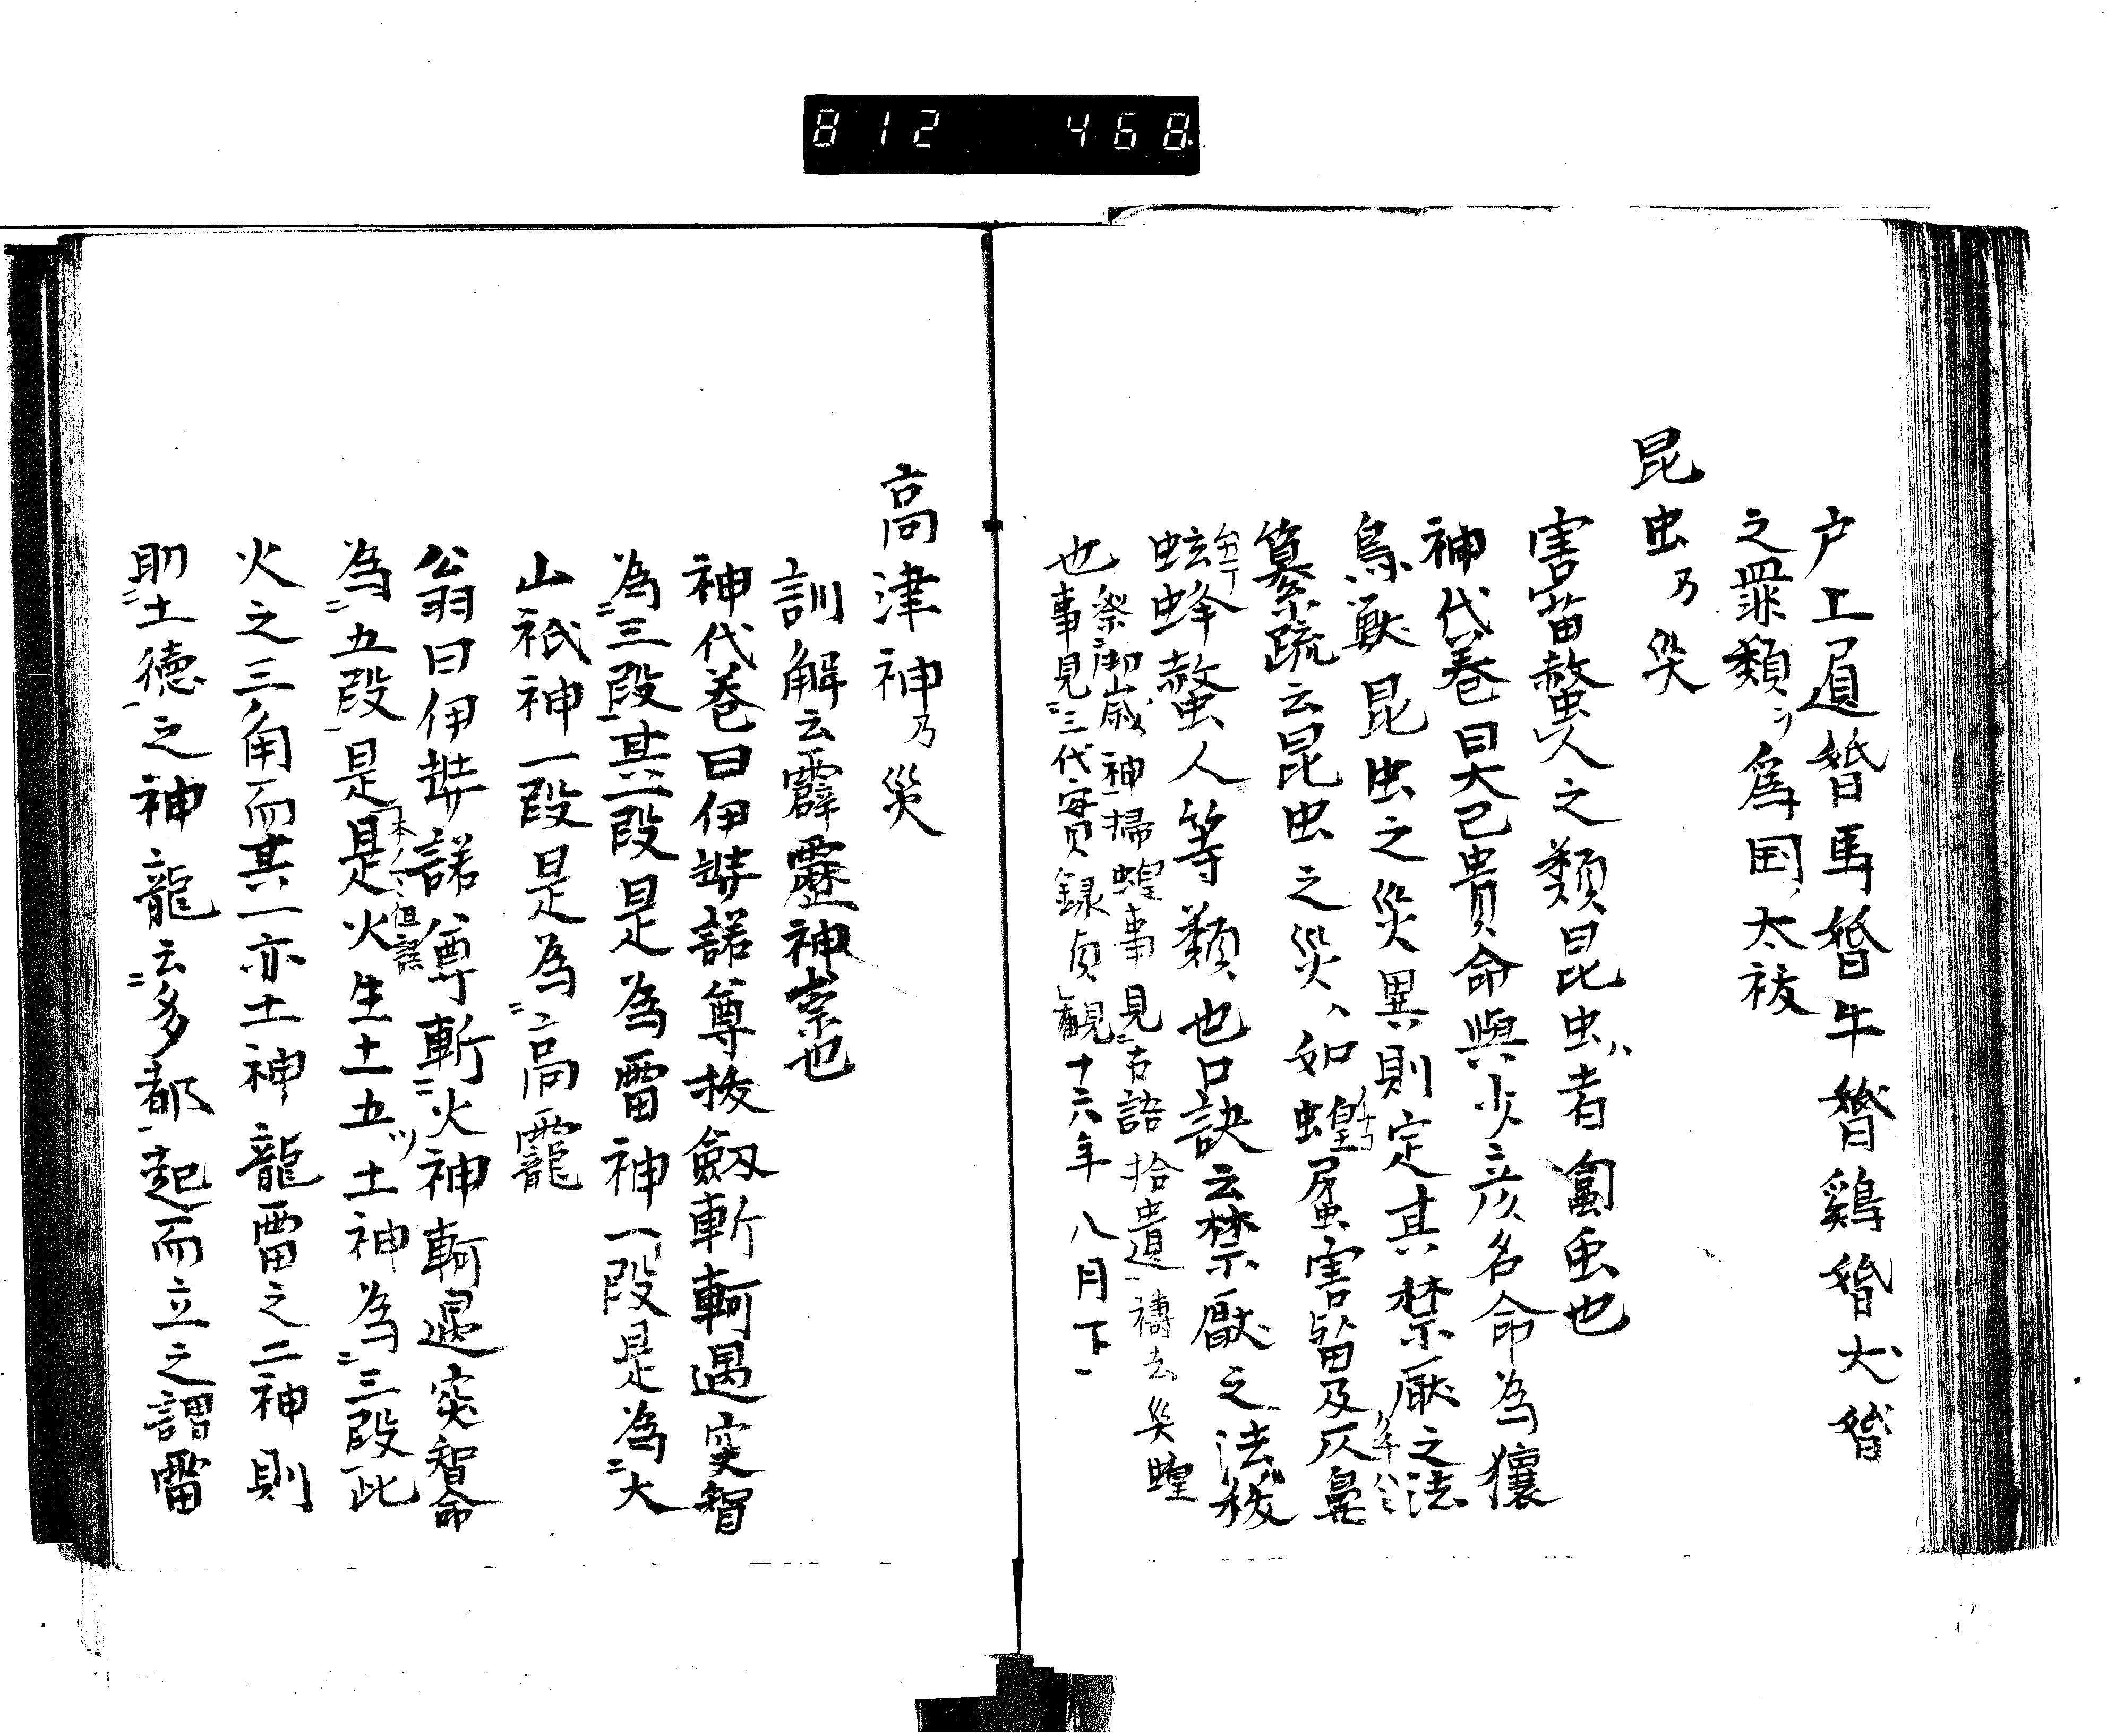 812 468
戸上屓婚馬婚牛婚鷄婚犬婚
之罪類ヲ為国ノ太祓
昆虫乃災
害苗螫人之類昆虫ハ者匍虫也
神代巻曰大己貴命與少彦名命為攘
鳥獣昆虫之災異則定其禁厭之法
纂疏云昆虫之災、如蝗蜃害苗及
蚿蜂螫人等類也口訣云禁厭之法秡
也祭御歳神掃蝗事見古語拾遺祷去災蝗
事見三代実録貞観十六年八月下
高津神乃災
訓解云霹靂神祟也
神代巻曰伊弉諾尊拔劔斬軻遇突智
為三段其一段是為雷神一段是為大
山祇神一段是為高龗
翁曰伊弉諾尊斬火神軻遇突智命
為五段是是火生土五ツ土神為三段此
火之三角而其一亦土神龍雷之二神則
土徳之神龍云多都起而立之謂雷